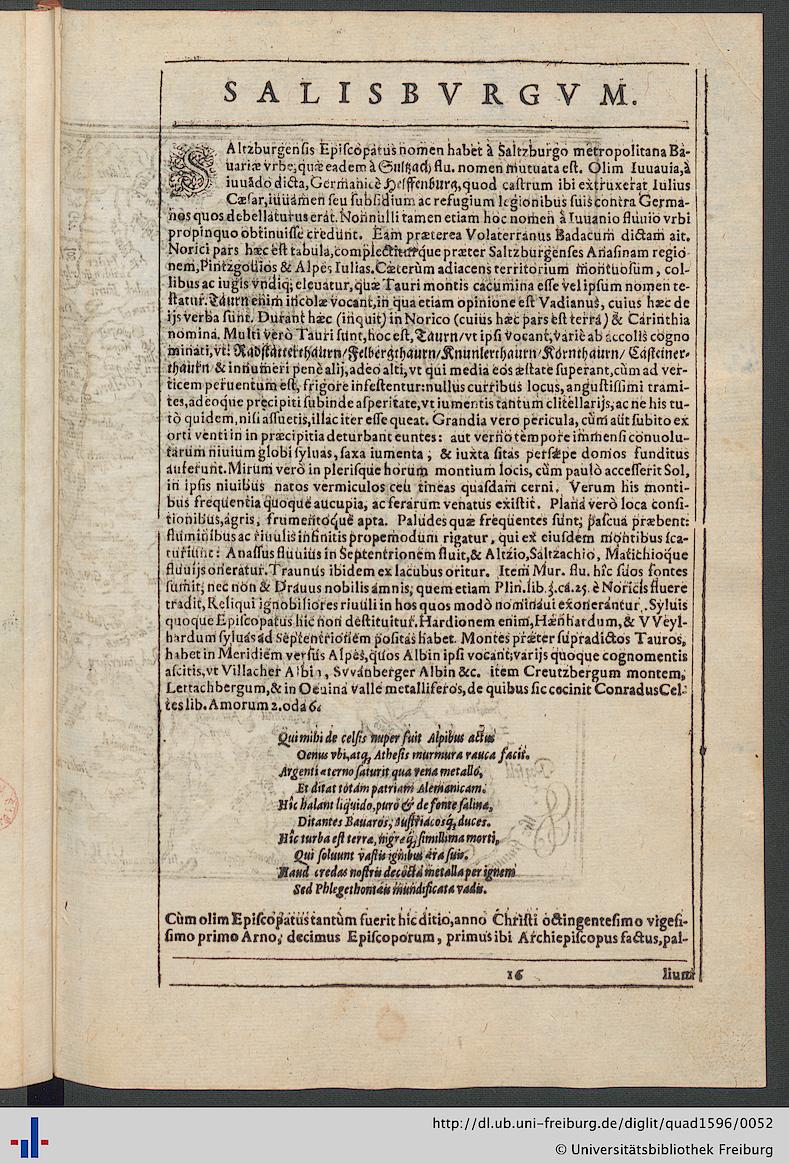 SALISBVRGVM.
SAltzburgensis Episcopatus nomen habet à Saltzburgo metropolitana Ba-
uariæ vrbe, quæ eadem à Sultzach flu. nomen mutuata est. Olim Iuuauia, à
iuuādo dicta, Germanicè Helffenburg, quod castrum ibi extruxerat Iulius
Cæsar, iuuamen seu subsidium ac refugium legionibus suis contra Germa-
nos quos debellaturus erat. Nonnulli tamen etiam hoc nomen à Iuuanio fluuio vrbi
propinquo obtinuisse credunt. Eam præterea Volaterranus Badacum dictam ait.
Norici pars hæc est tabula, complectiturque præter Saltzburgenses Anasinam regio
nem, Pintzgouios & Alpes Iulias. Cæterùm adiacens territorium montuosum, col-
libus ac iugis vndiq; eleuatur, quæ Tauri montis cacumina esse vel ipsum nomen te-
statur. Taurn enim incolæ vocant, in qua etiam opinione est Vadianus, cuius hæc de
ijs verba sunt. Durant hæc (inquit) in Norico (cuius hæc pars est terra) & Carinthia
nomina. Multi verò Tauri sunt, hoc est, Taurn/ vt ipsi vocant, variè ab accolis cogno
minati, vt: Radstatterthaurn/ Felbergthaurn/ Knunlerthaurn/ Kornthaurn/ Casteiner-
thaurn/ & innumeri penè alij, adeo alti, vt qui media eos æstate superant, cùm ad ver-
ticem peruentum est, frigore infestentur: nullus curribus locus, angustissimi trami-
tes, adeoque præcipiti subinde asperitate, vt iumentis tantum clitellarijs, ac ne his tu-
tò quidem, nisi assuetis, illac iter esse queat. Grandia vero pericula, cùm aut subito ex
orti venti in in præcipitia deturbant euntes: aut verno tempore immensi conuolu-
tarum niuium globi syluas, saxa iumenta, & iuxta sitas persæpe domos funditus
auferunt. Mirum verò in plerisque horum montium locis, cùm paulò accesserit Sol,
in ipsis niuibus natos vermiculos ceu tineas quasdam cerni. Verum his monti-
bus frequentia quoque aucupia, ac ferarum venatus existit. Plana verò loca consi-
tionibus, agris, frumentoque apta. Paludes quæ frequentes sunt, pascua præbent:
fluminibus ac riuulis infinitis propemodum rigatur, qui ex eiusdem montibus sca-
turiunt: Anassus fluuius in Septentrionem fluit, & Altzio, Saltzachio, Matichioque
fluuijs oneratur. Traunus ibidem ex lacubus oritur. Item Mur. flu. hîc suos fontes
sumit; nec non & Drauus nobilis amnis, quem etiam Plin. lib. 3. ca. 25. è Noricis fluere
tradit, Reliqui ignobiliores riuuli in hos quos modò nominaui exonerantur. Syluis
quoque Episcopatus hic non destituitur. Hardionem enim, Hænhardum, & VVeyl-
hardum syluas ad Septentrionem positas habet. Montes præter supradictos Tauros,
habet in Meridiem versus Alpes, quos Albin ipsi vocant; varijs quoque cognomentis
ascitis, vt Villacher Albin, Svvanberger Albin &c. item Creutzbergum montem,
Lettachbergum, & in Oeuina valle metalliferos, de quibus sic cecinit Conradus Cel-
tes lib. Amorum 2. oda 6.
Qui mihi de celsis nuper fuit Alpibus actus
Oenus vbi, atq; Athesis murmura rauca facit.
Argenti æterno saturit qua vena metallo,
Et ditat totam patriam Alemanicam.
Hîc halant liquido, puro & de fonte salinæ,
Ditantes Bauaros, Austriacosq; duces.
Hîc turba est terræ, nigræq; simillima morti,
Qui soluunt vastis ignibus æra suis.
Haud credas nostris decocta metalla per ignem
Sed Phlegethontæis mundificata vadis.
Cùm olim Episcopatus tantùm fuerit hic ditio, anno Christi octingentesimo vigesi-
simo primo Arno, decimus Episcoporum, primus ibi Archiepiscopus factus, pal-
16 lium
http://dl.ub.uni-freiburg.de/diglit/quad1596/0052
© Universitätsbibliothek Freiburg